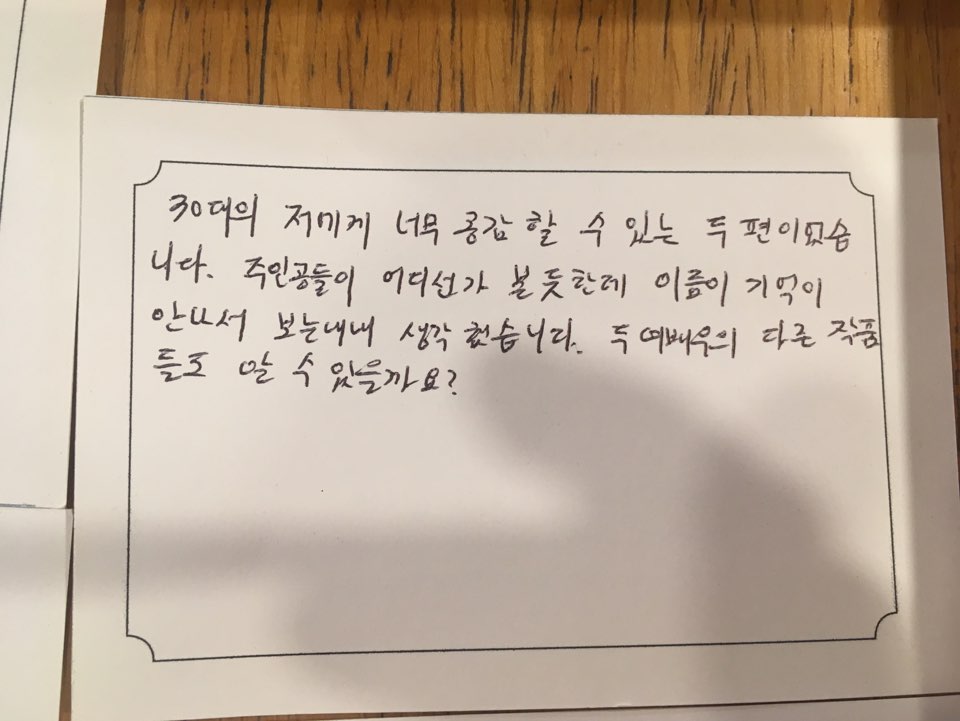 30대의 저에게 너무 공감 할 수 있는 두 편이었습
니다. 주인공들이 어디선가 볼 듯한데 이름이 기억이
안나서 보는내내 생각 했습니다. 두 여배우의 다른 작품
들도 알 수 있을까요?